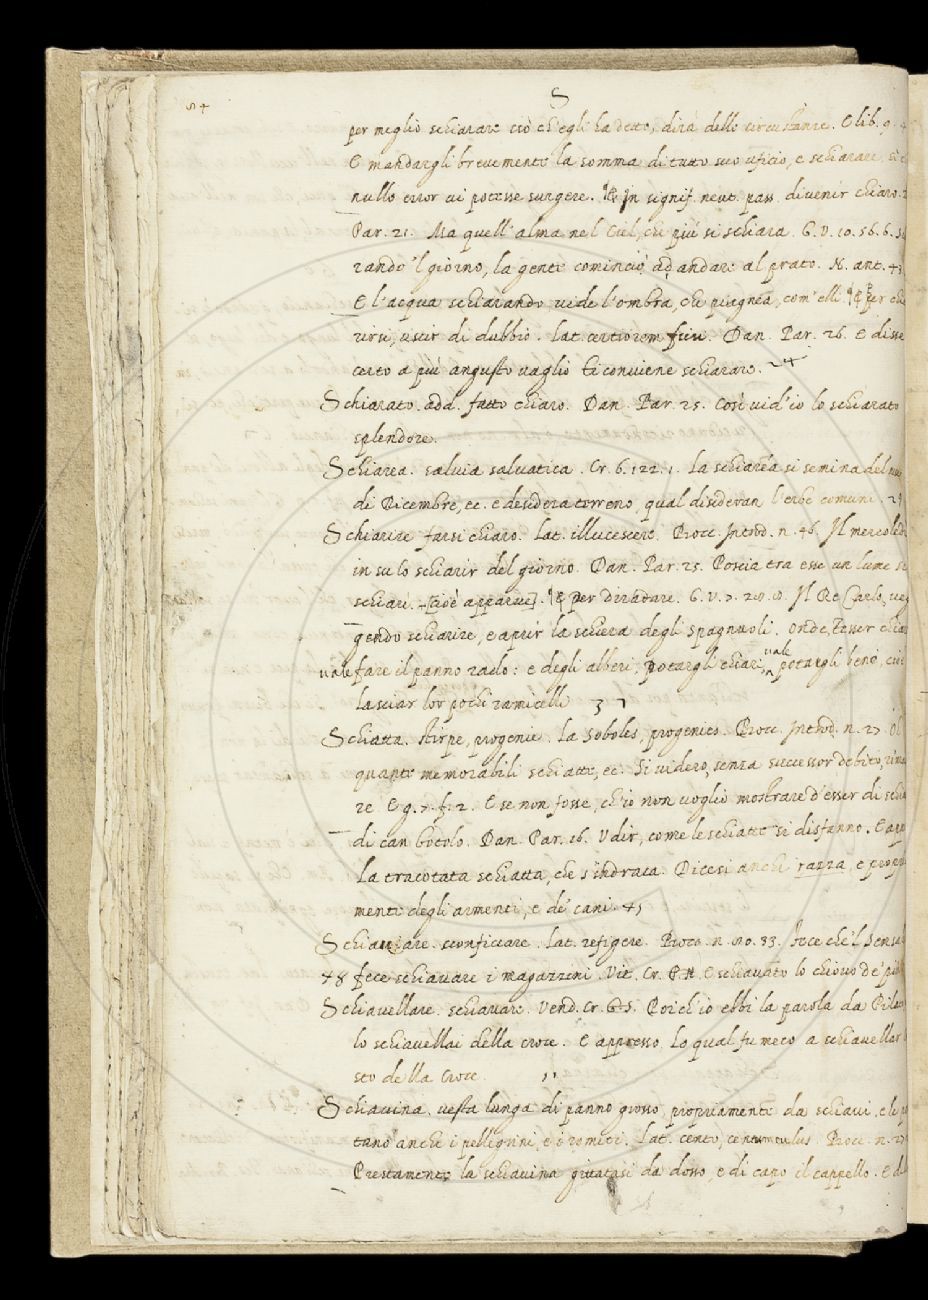 S
per meglio schiarare ciò ch'egli ha detto, dirà delle circustanze. E lib. 9.
E mandargli brevemente la somma di tutto suo uficio, e schiarare, sì
nullo error vi potesse surgere. ¶ In signif. neut. pass. divenir chiaro.
Par. 21. Ma quell'alma nel Ciel, che più si schiara. G. V. 10. 56. 6.
rando 'l giorno, la gente cominciò ad andare al prato. N. ant. 43
E l'acqua schiarando vide l'ombra, che piagnea, com'elli. ¶ Per
rirsi, uscir di dubbio. Lat. certiorem fieri. Dan. Par. 26. E disse
certo a più angusto vaglio ti conviene schiarare. 24
Schiarato. add. fatto chiaro. Dan. Par. 25. Così vid'io lo schiarato
splendore.
Schiarea. salvia salvatica. Cr. 6. 122. 1. La schiarèa si semina del
di Dicembre, ec. e desidera terreno, qual disideran l'erbe comuni. 29
Schiarire farsi chiaro. Lat. illucescere. Bocc. Introd. n. 46. Il mercoledì
in su lo schiarir del giorno. Dan. Par. 25. Poscia tra esse un lume si
schiarì. [cioè apparve]. ¶ per diradare. G. V. 7. Il Re Carlo, veg
gendo schiarire, e aprir la schiera degli Spagnuoli. Onde,
vale fare il panno rado: e degli alberi, potargli chiari, vale potargli bene, cioè
lasciar lor pochi ramicelli 37
Schiatta. stirpe, progenie. La soboles, progenies. Bocc. Introd. n. 27. Oh
quante memorabili schiatte, ec. Si videro, senza successor debito, rima
re E g. 7. f. 2. E se non fosse, ch'io non voglio mostrare d'esser di schia
di can botolo. Dan. Par. 16. Udir, come le schiatte si disfanno. E app
La tracotata schiatta, che s'indraca. Dicesi anche razza, e propria
mente degli armenti, e de' cani. 45
Schiavare. sconficcare. Lat. refigere. Bocc. n. 33.
48 fece schiavare i magazzini. Vit. Cr. E schiavato lo chiovo de' pi
Schiavellare. schiavare. Vend. Cr. Poich'io ebbi la parola da Pilato
lo schiavellai della croce. E appresso. Lo qual fu meco a schiavellar
sto della Croce.
Schiavina. vesta lunga di panno grosso, propriamente da schiavi, e la
tano anche i pellegrini, e i romiti. Lat. cento, centunculus. Bocc. n.
Prestamente la schiavina gittatasi da dosso, e di capo il cappello. E